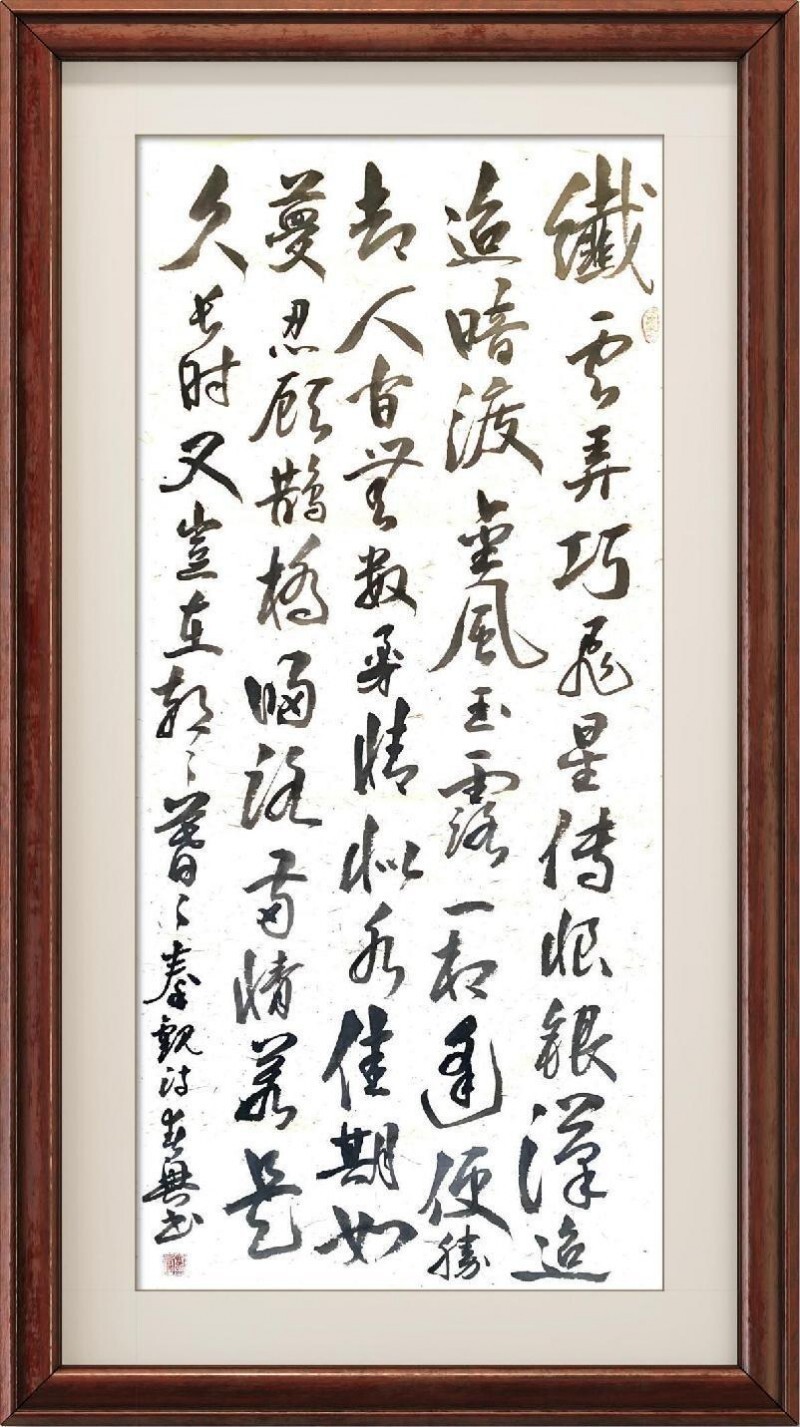 纖雲弄巧飛星傳恨銀漢迢
迢暗渡金風玉露一相逢便勝
却人間無數柔情似水佳期如
夢忍顧鵲橋歸路兩情若是
久长时又豈在朝々暮々秦觀詩興书